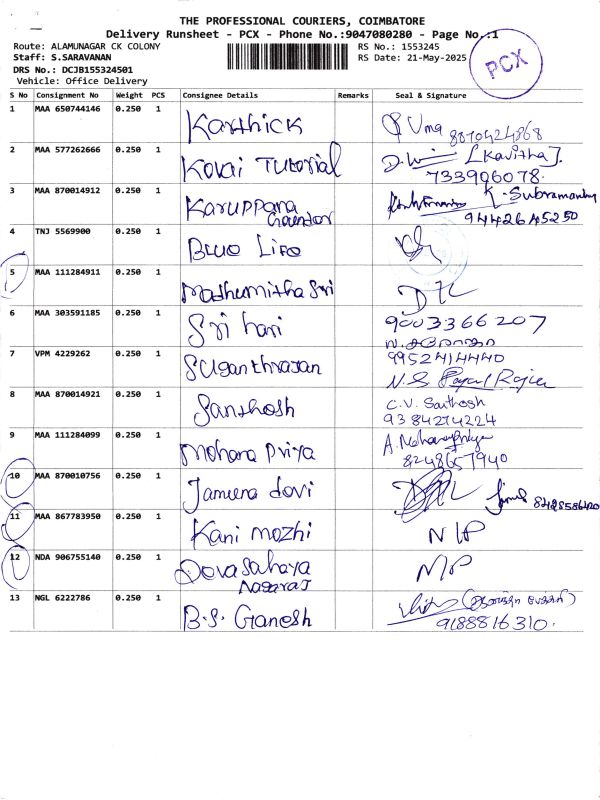 THE PROFESSIONAL COURIERS, COIMBATORE
Delivery Runsheet - PCX - Phone No.:9047080280 - Page No.:1
Route: ALAMUNAGAR CK COLONY RS No.: 1553245
Staff: S.SARAVANAN RS Date: 21-May-2025
PCX
DRS No.: DCJB155324501
Vehicle: Office Delivery
S No Consignment No Weight PCS Consignee Details Remarks Seal & Signature
1 MAA 650744146 0.250 1 Karthick Uma
2 MAA 577262666 0.250 1 Kovai Tutorial [Kavitha].
733906078.
3 MAA 870014912 0.250 1 Karuppana Gounder K. Subramaniyan
9442645250
4 TNJ 5569900 0.250 1 Blue Life
5 MAA 111284911 0.250 1 Mathumitha Sri
6 MAA 303591185 0.250 1 Sri hari 9003366207
7 VPM 4229262 0.250 1 Suganthrajan 9952414440
8 MAA 870014921 0.250 1 Santhosh C.V. Santhosh
9384274224
9 MAA 111284099 0.250 1 Mohana Priya
8248657940
10 MAA 870010756 0.250 1 Jameena devi
11 MAA 867783950 0.250 1 Kani mozhi
12 NDA 906755140 0.250 1 Devasahaya Nagaraj
13 NGL 6222786 0.250 1 B.S. Ganesh
9188816310.